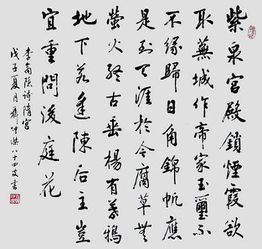 紫泉宮殿鎖煙霞欲
取蕪城作帝家玉璽
不緣歸日角錦帆應
是到天涯於今腐草無
螢火終古垂楊有暮鴉
地下若逢陳後主豈
宜重問後庭花
李商隱詩隋宮
戊子夏月八十四叟書